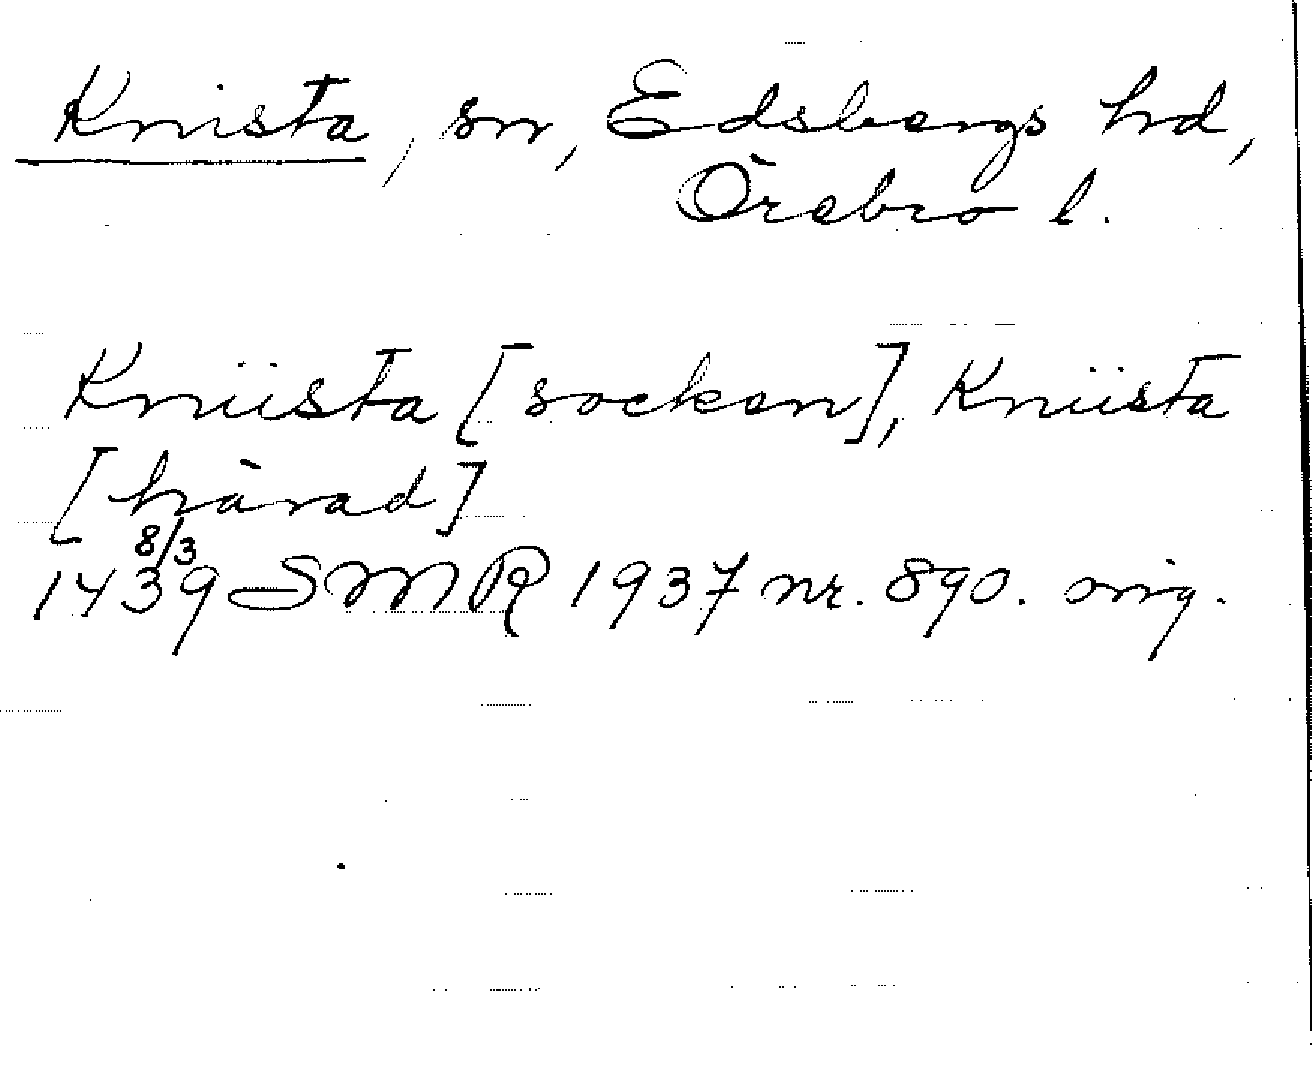 Knista, sn, Edsbergs hd,
Örebro l.
Kniista [socken], Kniista
[härad]
8/3
1439 SMR 1937 nr. 890. orig.